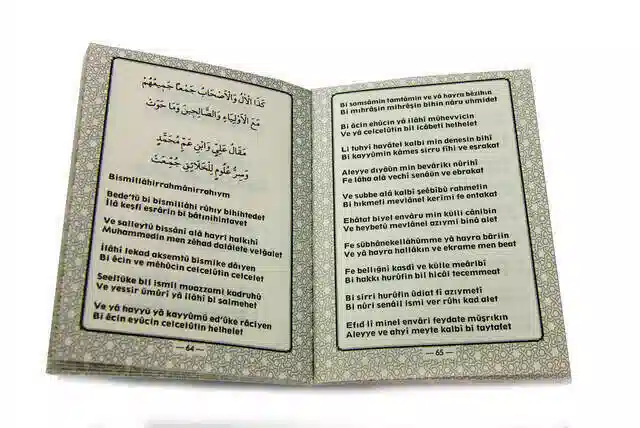 كَذَا الْاٰلُ وَالْاَصْحَابُ جَمْعًا جَمِيعُهُمْ
مَعَ الْاَوْلِيَاءِ وَالصَّالِحِينَ وَمَا حَوَتْ
مَقَالُ عَلِيٍّ وَابْنِ عَمِّ مُحَمَّدٍ
وَسِرُّ عُلُومٍ لِلْخَلَائِقِ جُمِّعَتْ
Bismillâhirrahmânirrahıym
Bede'tü bi bismillâhi rûhıy bihihtedet
İlâ keşfi esrârin bi bâtınihintavet
Ve salleytü bissânî alâ hayri halkıhî
Muhammedin men zêhad dalâlete velğalet
İlâhî lekad aksemtü bismike dâıyen
Bi êcin ve mêhûcin celcelûtin celcelet
Seeltüke bil ismil muazzami kadruhû
Ve yessir ümûrî yâ ilâhî bi salmehet
Ve yâ hayyü yâ kayyûmü ed'ûke râciyen
Bi êcin eyûcin celcelûtin helhelet
— 64 —
Bi samsâmin tamtâmin ve yâ hayra bêzihın
Bi mıhrâşin mihrâşin bihin nâru uhmidet
Bi êcin ehûcin yâ ilâhî mühevvicin
Ve yâ celcelûtin bil icâbeti helhelet
Li tuhyî hayâtel kalbi min denesin bihî
Bi kayyûmin kâmes sirru fîhi ve eşrakat
Aleyye dıyâün min bevârikı nûrihî
Fe lâha alâ vechî senâün ve ebrakat
Ve subbe alâ kalbî şeêbibü rahmetin
Bi hıkmeti mevlânel kerimi fe entakat
Ehâtat biyel envâru min külli cânibin
Ve heybetü mevlânel azıymi binâ alet
Fe sübhânekellâhümme yâ hayra bâriin
Ve yâ hayra hallâkın ve ekrame men beat
Fe bellığnî kasdî ve külle meâribî
Bi hakkı hurûfin bil hicâi tecemmeat
Bi sirri hurûfin ûdiat fî azıymetî
Bi nûri senâil ismi ver rûhı kad alet
Efıd lî minel envâri feydate müşrıkın
Aleyye ve ahyî meyte kalbî bi taytafet
— 65 —